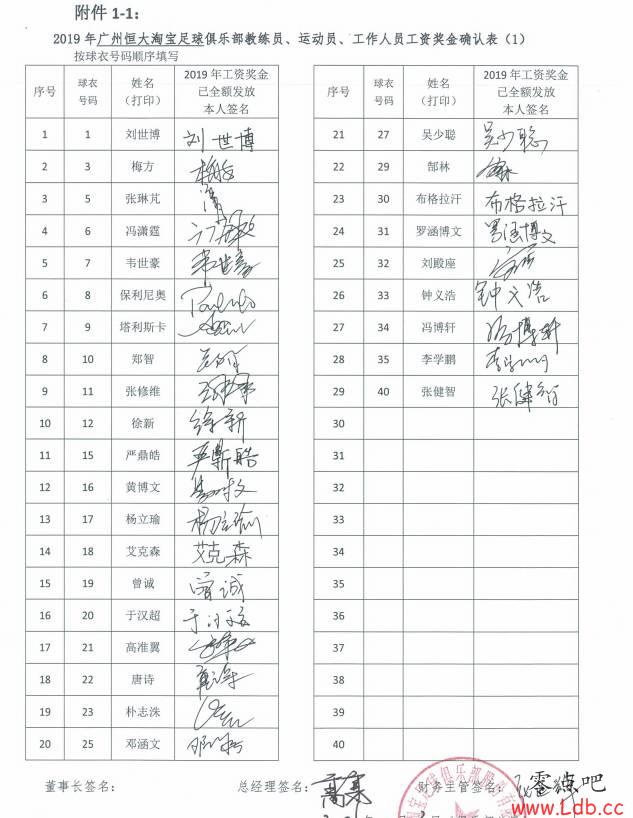 附件 1-1：
2019 年广州恒大淘宝足球俱乐部教练员、运动员、工作人员工资奖金确认表（1）
按球衣号码顺序填写
序号 球衣号码 姓名（打印） 2019 年工资奖金已全额发放本人签名
1 1 刘世博 刘世博
2 3 梅方 梅方
3 5 张琳芃
4 6 冯潇霆
5 7 韦世豪 韦世豪
6 8 保利尼奥
7 9 塔利斯卡
8 10 郑智
9 11 张修维
10 12 徐新 徐新
11 15 严鼎皓 严鼎皓
12 16 黄博文
13 17 杨立瑜 杨立瑜
14 18 艾克森 艾克森
15 19 曾诚 曾诚
16 20 于汉超 于汉超
17 21 高准翼
18 22 唐诗
19 23 朴志洙
20 25 邓涵文
序号 球衣号码 姓名（打印） 2019 年工资奖金已全额发放本人签名
21 27 吴少聪 吴少聪
22 29 郜林
23 30 布格拉汗 布格拉汗
24 31 罗涵博文 罗涵博文
25 32 刘殿座
26 33 钟义浩 钟义浩
27 34 冯博轩 冯博轩
28 35 李学鹏
29 40 张健智 张健智
30
31
32
33
34
35
36
37
38
39
40
董事长签名：
总经理签名：
财务主管签名：
宝足球俱乐部
零点吧
www.Ldb.cc